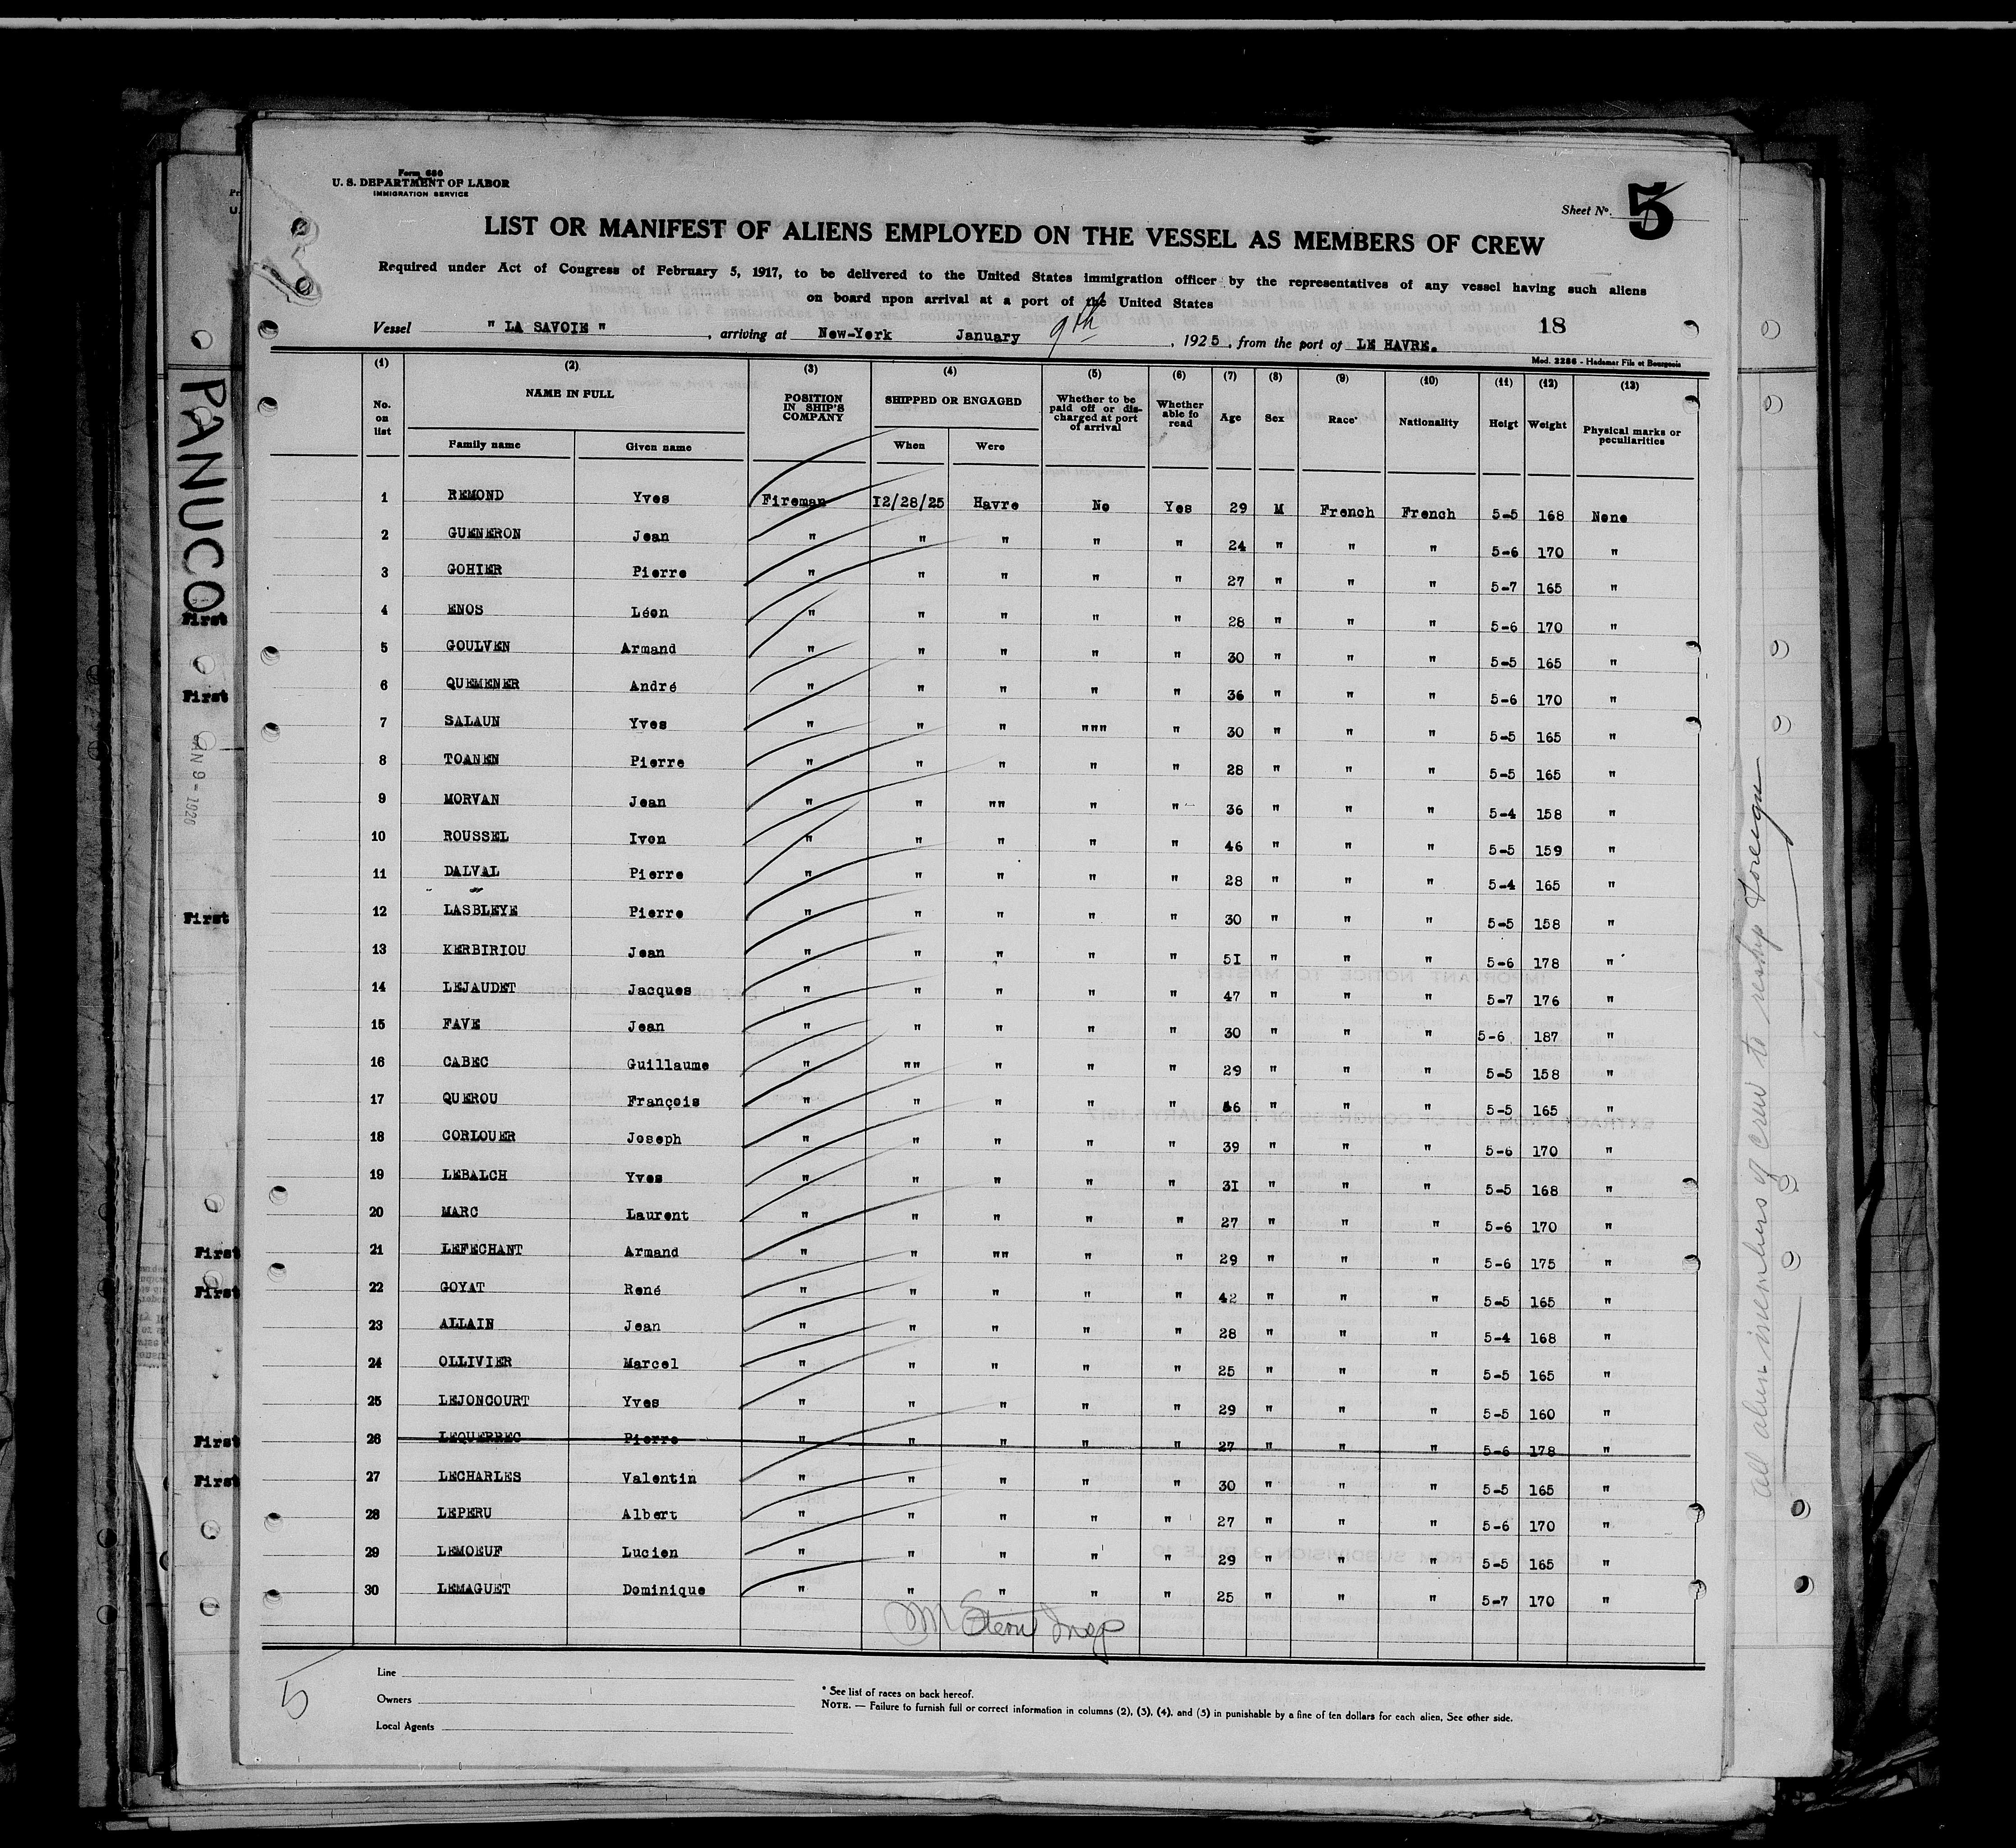 Form 680
U. S. DEPARTMENT OF LABOR
IMMIGRATION SERVICE
Sheet No. 5
LIST OR MANIFEST OF ALIENS EMPLOYED ON THE VESSEL AS MEMBERS OF CREW
Required under Act of Congress of February 5, 1917, to be delivered to the United States immigration officer by the representatives of any vessel having such aliens
on board upon arrival at a port of the United States
18
Vessel " LA SAVOIE " , arriving at New-York January 9th , 1925 , from the port of LE HAVRE.
Mod. 2286 - Hadamar Fils et Bourgeois
(1) (2) (3) (4) (5) (6) (7) (8) (9) (10) (11) (12) (13)
No. on list NAME IN FULL POSITION IN SHIP'S COMPANY SHIPPED OR ENGAGED Whether to be paid off or discharged at port of arrival Whether able fo read Age Sex Race* Nationality Heigt Weight Physical marks or peculiarities
Family name Given name When Were
1 REMOND Yves Fireman 12/28/25 Havre No Yes 29 M French French 5-5 168 None
2 GUENERON Jean " " " " " 24 " " " 5-6 170 "
3 GOHIER Pierre " " " " " 27 " " " 5-7 165 "
4 ENOS Léon " " " " " 28 " " " 5-6 170 "
5 GOULVEN Armand " " " " " 30 " " " 5-5 165 "
6 QUEMENER André " " " " " 36 " " " 5-6 170 "
7 SALAUN Yves " " " """ " 30 " " " 5-5 165 "
8 TOANEN Pierre " " " " " 28 " " " 5-5 165 "
9 MORVAN Jean " " "" " " 36 " " " 5-4 158 "
10 ROUSSEL Ivon " " " " " 46 " " " 5-5 159 "
11 DALVAL Pierre " " " " " 28 " " " 5-4 165 "
12 LASBLEYE Pierre " " " " " 30 " " " 5-5 158 "
13 KERBIRIOU Jean " " " " " 51 " " " 5-6 178 "
14 LEJAUDET Jacques " " " " " 47 " " " 5-7 176 "
15 FAVE Jean " " " " " 30 " " " 5-6 187 "
16 CABEC Guillaume " "" " " " 29 " " " 5-5 158 "
17 QUEROU François " " " " " 46 " " " 5-5 165 "
18 CORLOUER Joseph " " " " " 39 " " " 5-6 170 "
19 LEBALCH Yves " " " " " 31 " " " 5-5 168 "
20 MARC Laurent " " " " " 27 " " " 5-6 170 "
21 LEFECHANT Armand " " "" " " 29 " " " 5-6 175 "
22 GOYAT René " " " " " 42 " " " 5-5 165 "
23 ALLAIN Jean " " " " " 28 " " " 5-4 168 "
24 OLLIVIER Marcel " " " " " 25 " " " 5-5 165 "
25 LEJONCOURT Yves " " " " " 29 " " " 5-5 160 "
26 LEQUERREC Pierre " " " " " 27 " " " 5-6 178 "
27 LECHARLES Valentin " " " " " 30 " " " 5-5 165 "
28 LEPERU Albert " " " " " 27 " " " 5-6 170 "
29 LEMOEUF Lucien " " " " " 29 " " " 5-5 165 "
30 LEMAGUET Dominique " " " " " 25 " " " 5-7 170 "
M Stern Insp
5
Line
Owners
Local Agents
* See list of races on back hereof.
NOTE. — Failure to furnish full or correct information in columns (2), (3), (4), and (5) in punishable by a fine of ten dollars for each alien, See other side.
PANUCO
First
First
JAN 9 - 1926
First
First
First
First
First
all alien members of crew to reship foreign